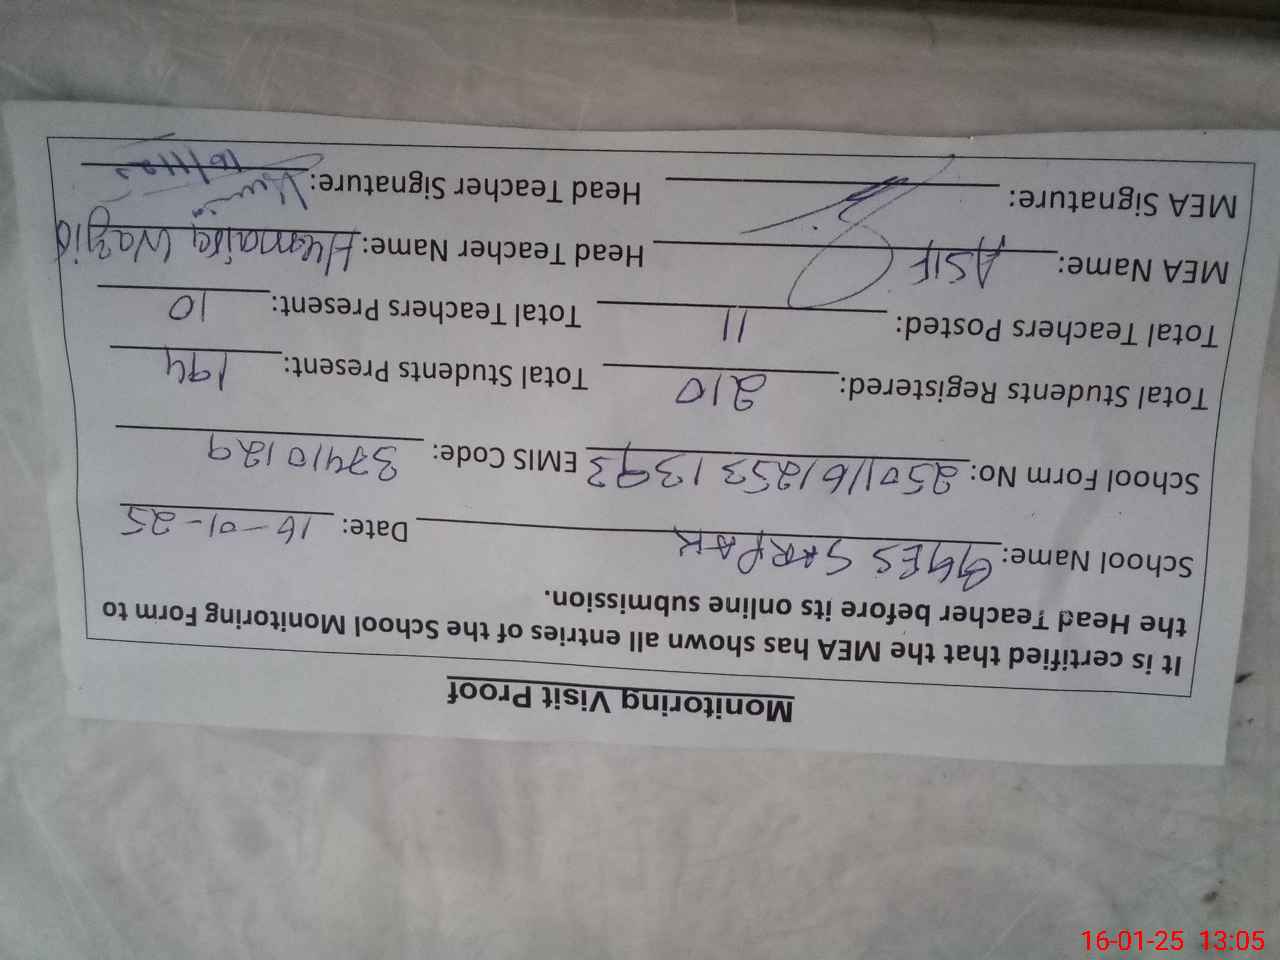 Monitoring Visit Proof
It is certified that the MEA has shown all entries of the School Monitoring Form to
the Head Teacher before its online submission.
School Name: GGES SARPAK Date: 16-01-25
School Form No: 2501161253 1393 EMIS Code: 37410129
Total Students Registered: 210 Total Students Present: 194
Total Teachers Posted: 11 Total Teachers Present: 10
MEA Name: ASIF Head Teacher Name: Humaira Wazid
MEA Signature: Head Teacher Signature:
16-01-25 13:05